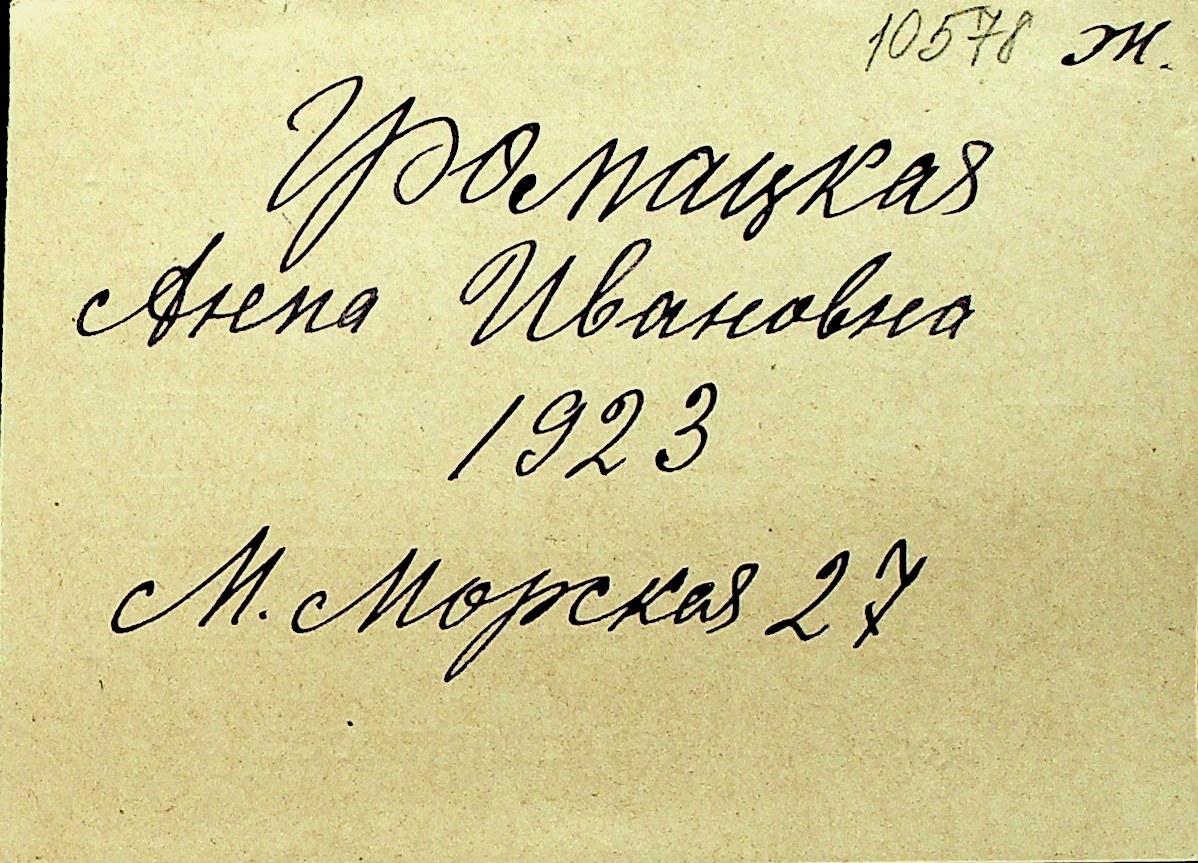 10578 ж.
Громацкая
Анна Ивановна
1923
М. Морская 27